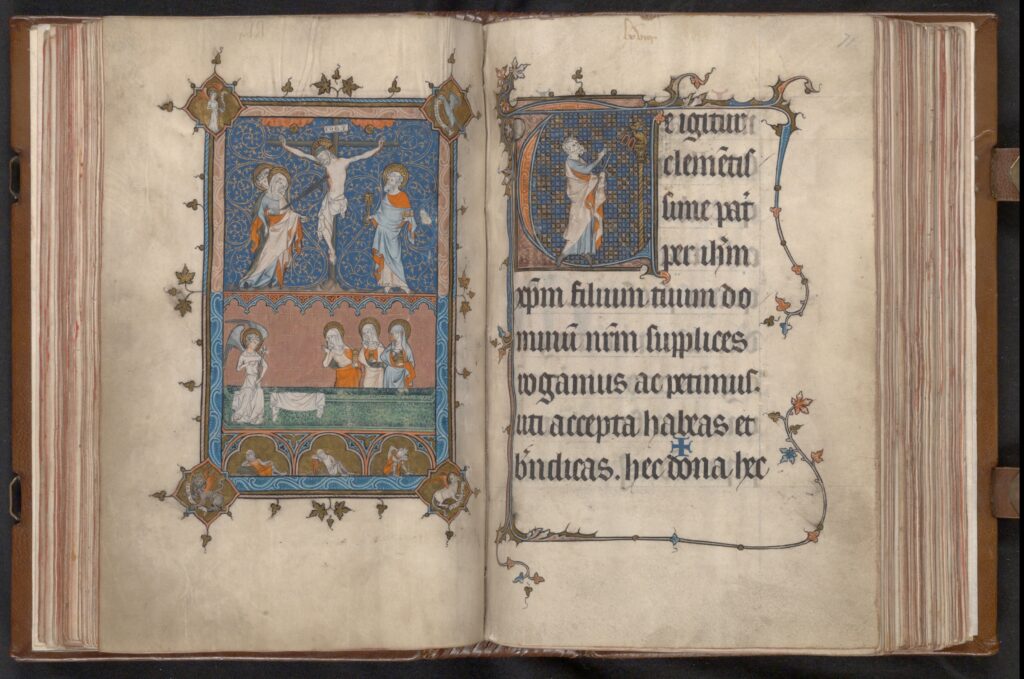 e igitur
clemētis
sime pat̄
per ih̄m
xp̄m filium tuum do
minū nr̄m supplices
rogamus ac petimus.
uti accepta habeas et
b̄ndicas. hec dona hec